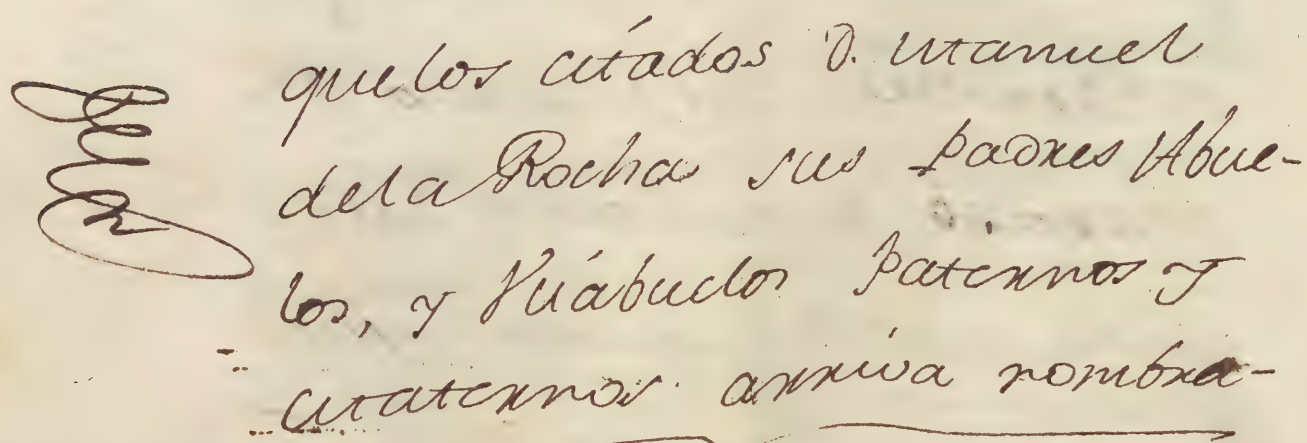 que los citados D. Manuel
dela Rocha sus Padres Abue-
los, y Viśabuelos Paternos y
Maternos arriva nombra-